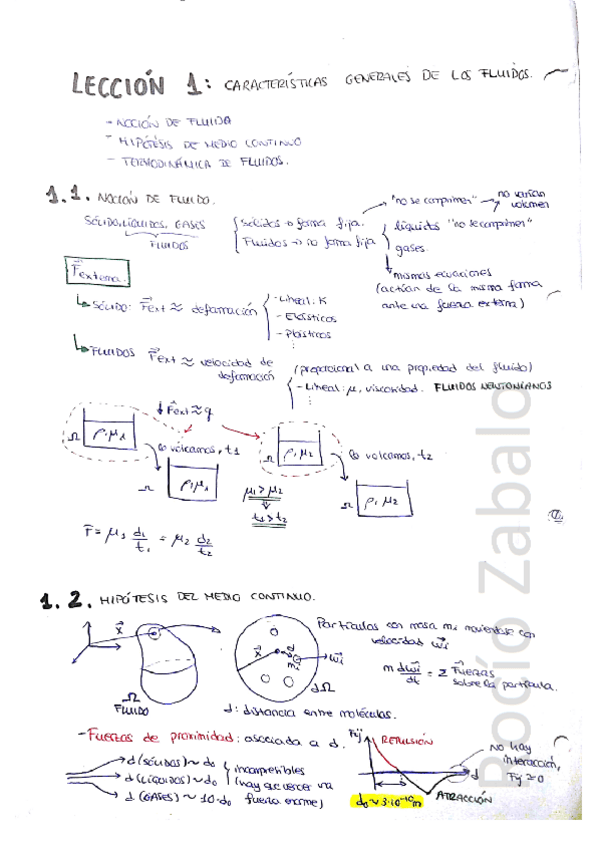 LECCIÓN 1: CARACTERÍSTICAS GENERALES DE LOS FLUIDOS.
- NOCIÓN DE FLUIDA
- HIPÓTESIS DE MEDIO CONTINUO
- TERMODINÁMICA DE FLUIDOS.
1.1. NOCIÓN DE FLUIDO.
"no se comprimen" → no varían volumen
SÓLIDO, LÍQUIDOS, GASES
FLUIDOS
Sólidos → forma fija.
Fluidos → no forma fija
líquidos "no se comprimen"
gases.
mismas ecuaciones
(actúan de la misma forma
ante una fuerza externa)
F externa.
SÓLIDO: Fext ≈ deformación
- Lineal: K
- Elásticos
- Plásticos
FLUIDOS Fext ≈ velocidad de
deformación
(proporcional a una propiedad del fluido)
- Lineal: μ, viscosidad. FLUIDOS NEWTONIANOS
Fext ≈ g
ρ, μ1
Ω
Lo volcamos, t1
ρ, μ1
Ω
ρ, μ2
Ω
Lo volcamos, t2
ρ, μ2
Ω
μ1 > μ2
t1 > t2
F = μ1 d1/t1 = μ2 d2/t2
1.2. HIPÓTESIS DEL MEDIO CONTINUO.
Partículas con masa mi moviéndose con
velocidad wi
m dwi/dt = Σ Fuerzas
sobre la partícula.
x
Ω
FLUIDO
x
d
mi
wi
dΩ
d: distancia entre moléculas.
- Fuerzas de proximidad: asociada a d.
d (SÓLIDOS) ~ do
d (LÍQUIDOS) ~ do
d (GASES) ~ 10·do
incompresibles
(hay que vencer una
fuerza enorme)
Fij
REPULSIÓN
d
do ~ 3·10⁻¹⁰ m
ATRACCIÓN
No hay
interacción,
Fij ≈ 0
Rocío Zabalo